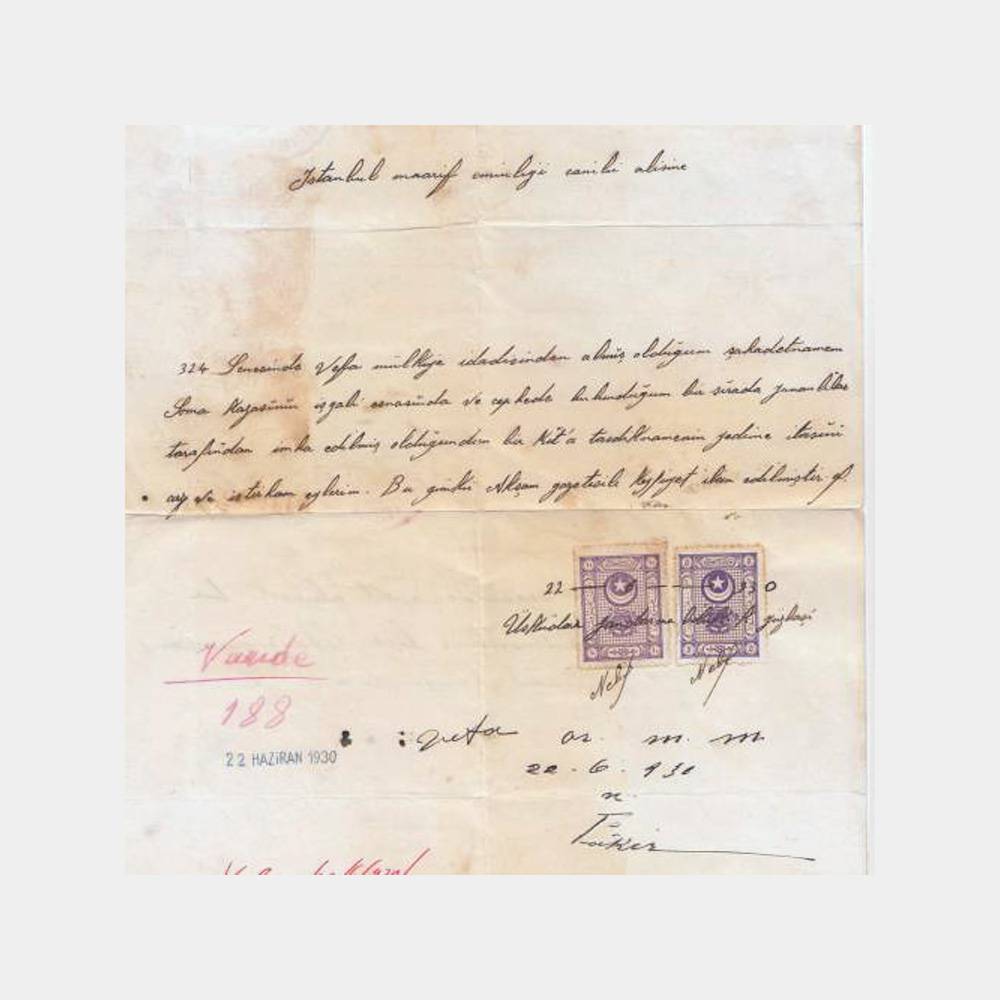 Istanbul maarif eminligi canibi alisine
324 Senesinde Vefa mülkiye idadisinden almiş oldiğum şahadetnamem
Soma Kazasinin işgali esnasinda ve cephede bulunduğum bir sirada yunanlilar
tarafindan imha edilmiş oldiğundan bir Kit'a tasdiknamenin yedime itasini
ve istirham eylerim. Bu günki Akşam gazetesile Keyfiyet ilan edilmiştir ef.
22 930
Üsküdar
Varide
188
22 HAZİRAN 1930
or. m. m.
22 . 6 . 930